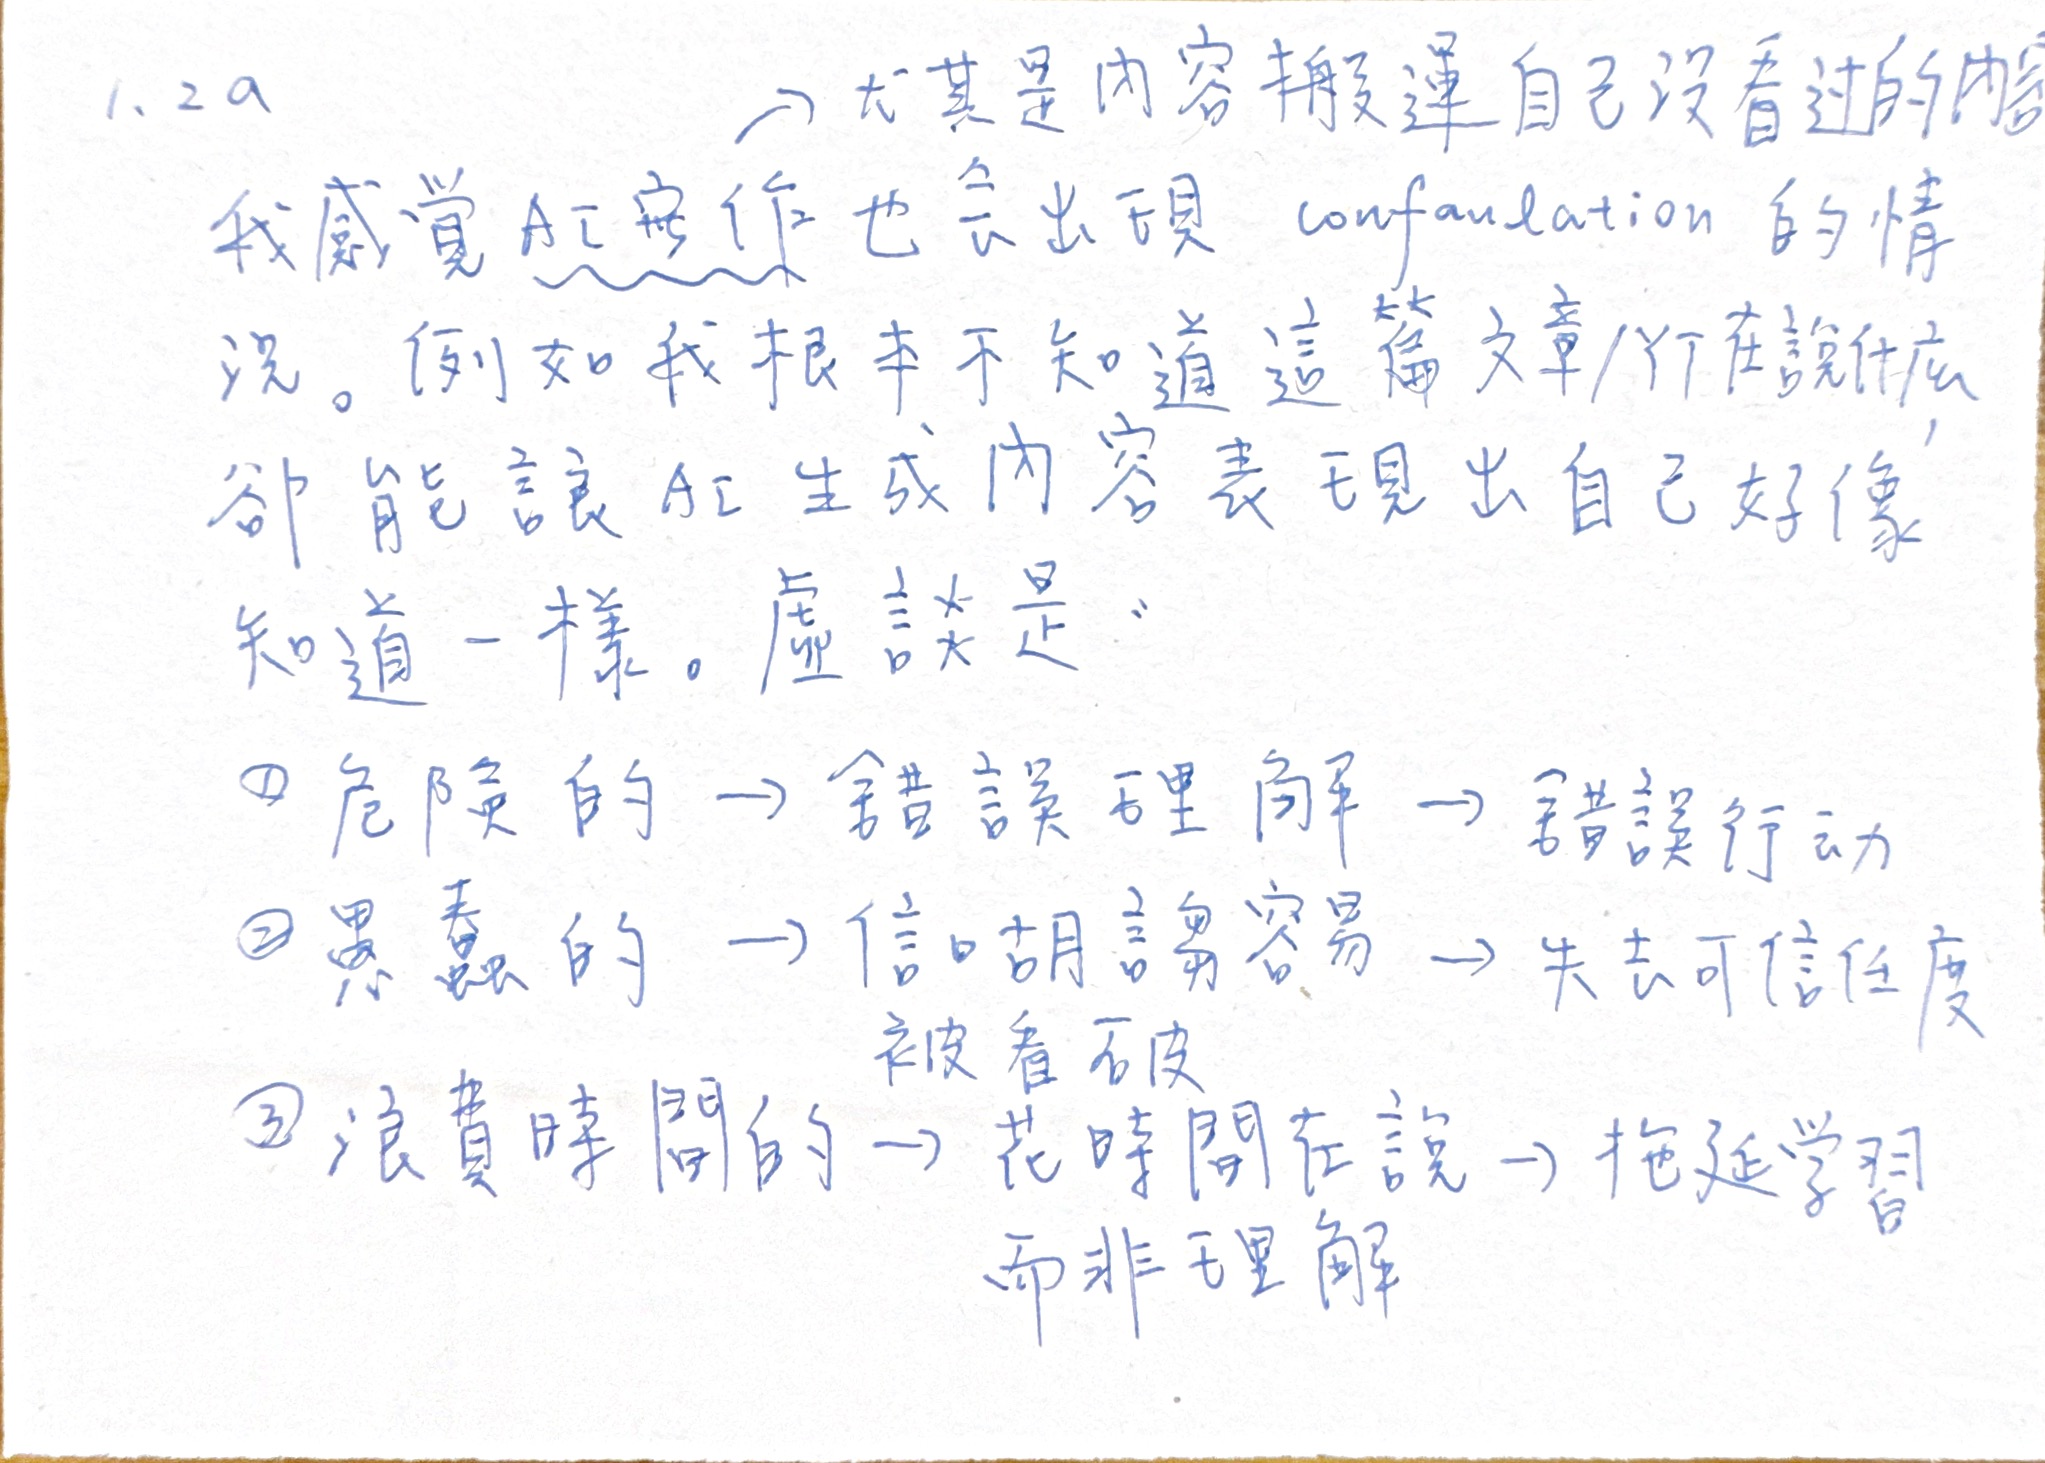 1.2a
→ 尤其是內容搬運自己没看过的內容
我感覚AI寫作也会出現 confaulation 的情
況。例如我根本不知道這篇文章/YT在說什庅,
卻能讓AI生成內容表現出自己好像
知道一樣。虛談是:
① 危險的 → 錯誤理解 → 錯誤行动
② 愚蠢的 → 信口胡謅容易 → 失去可信任度
被看破
③ 浪費時間的 → 花時間在說 → 拖延学習
而非理解